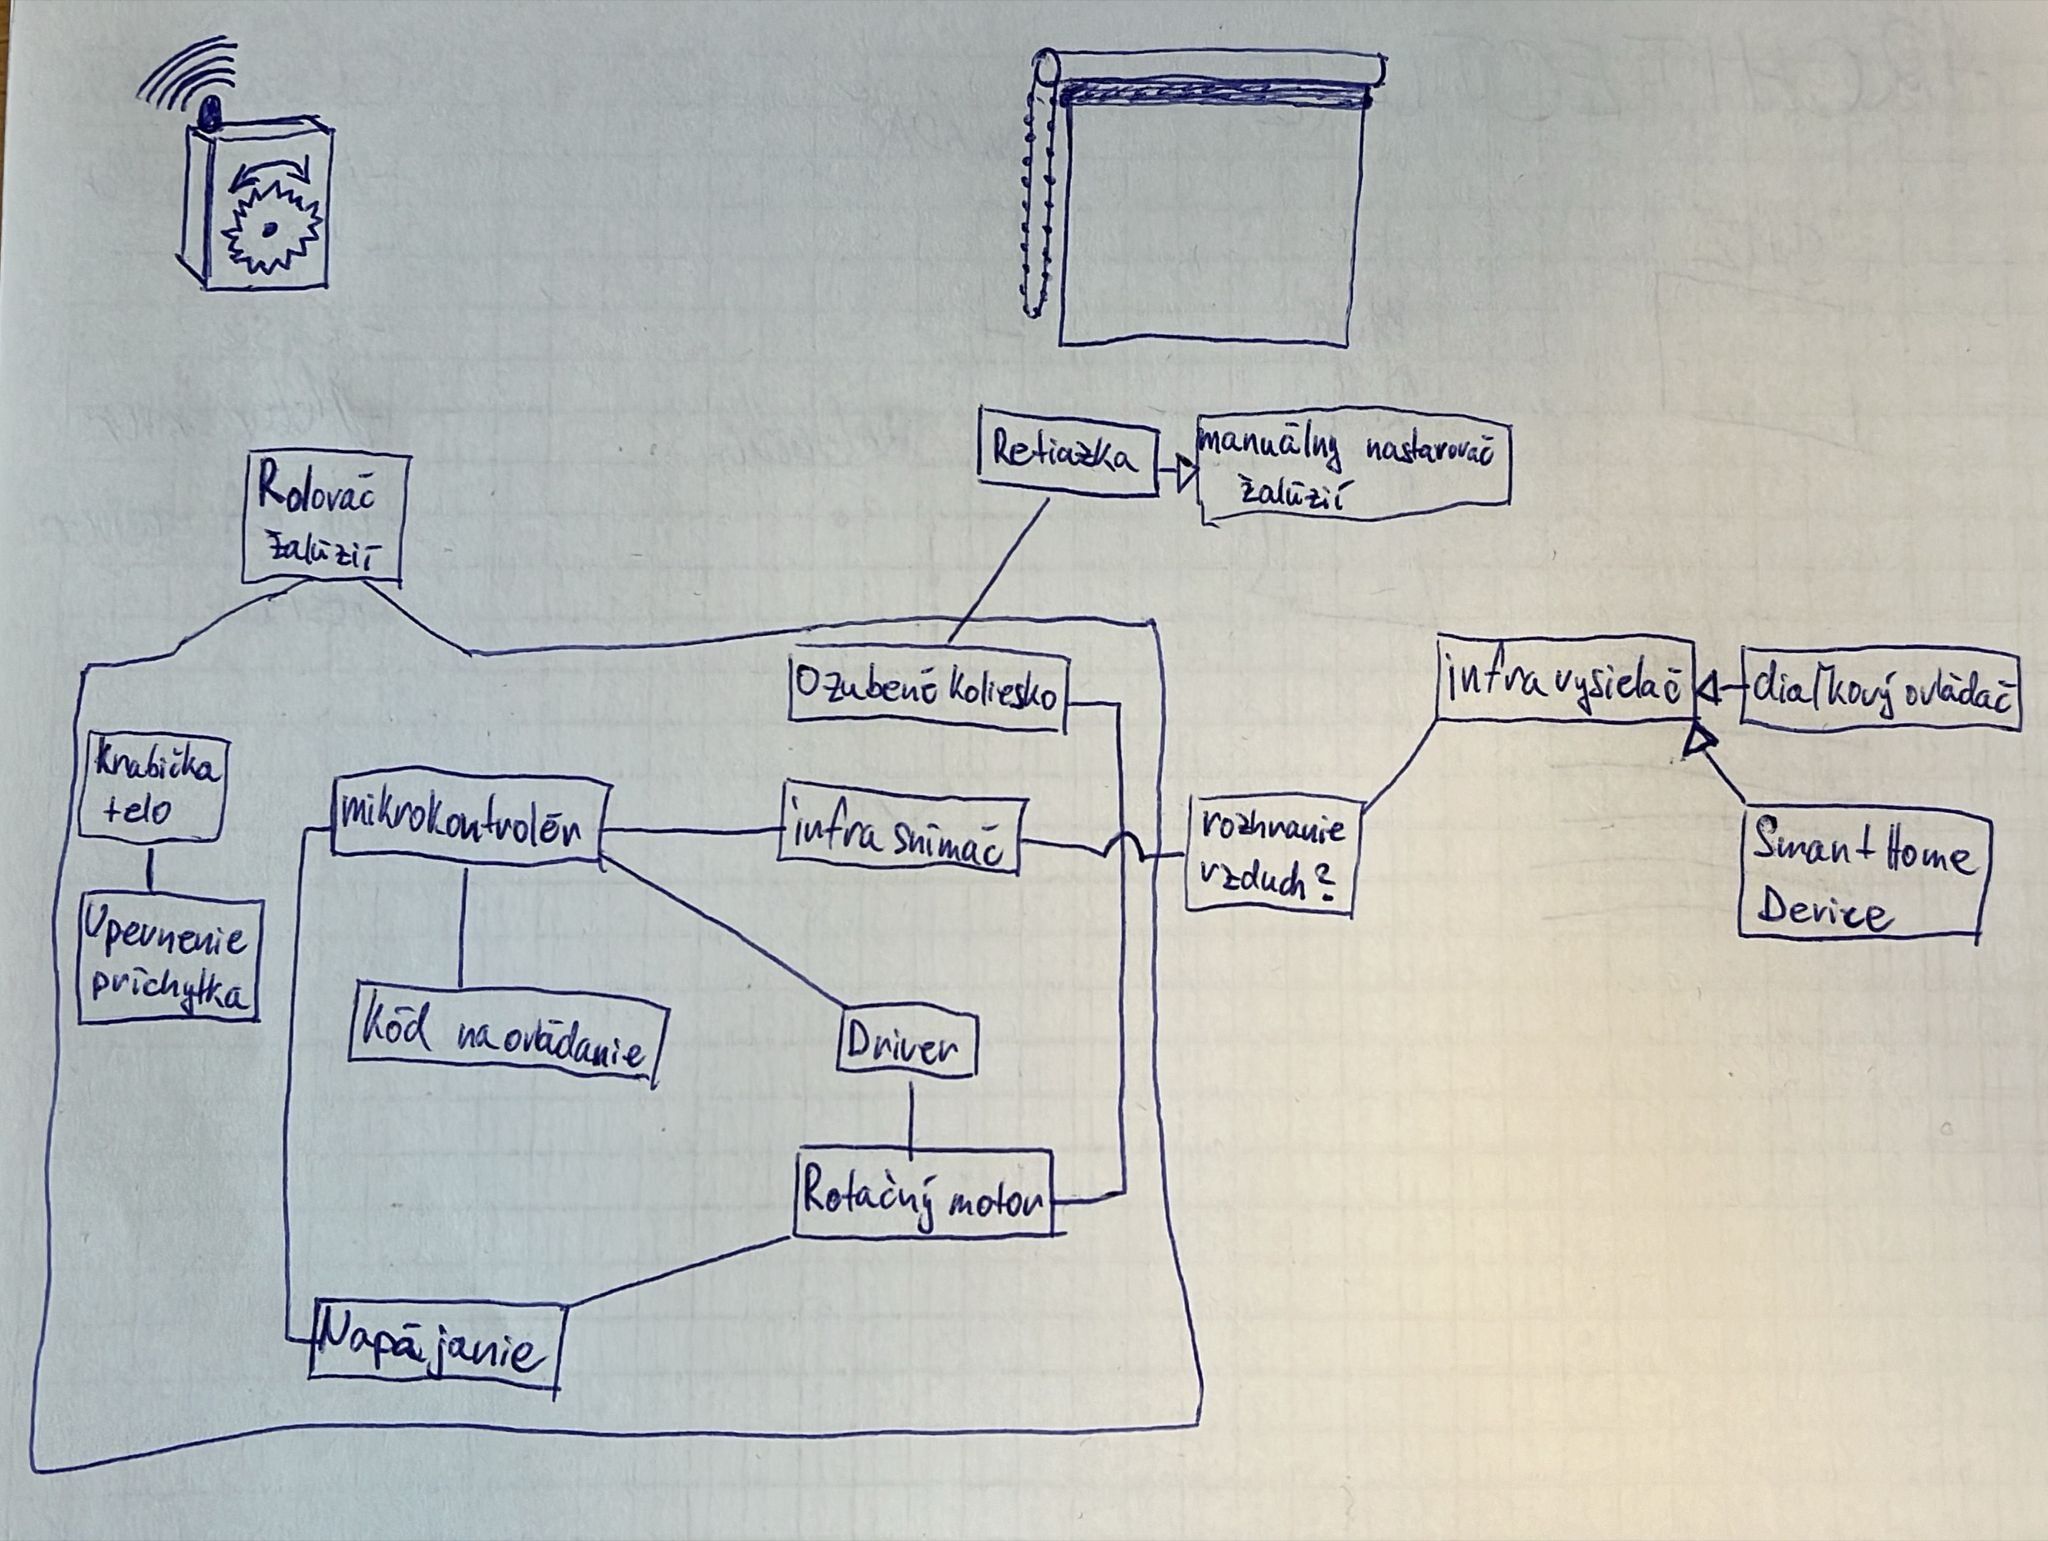 Retiazka
manuálny nastavovač
žalúzií
Rolovač
žalúzií
Ozubené koliesko
infra vyšielač
diaľkový ovládač
Krabička
telo
mikrokontrolér
infra snímač
rozhranie
vzduch?
Smart Home
Device
Upevnenie
príchytka
Kód na ovládanie
Driver
Rotačný motor
Napájanie